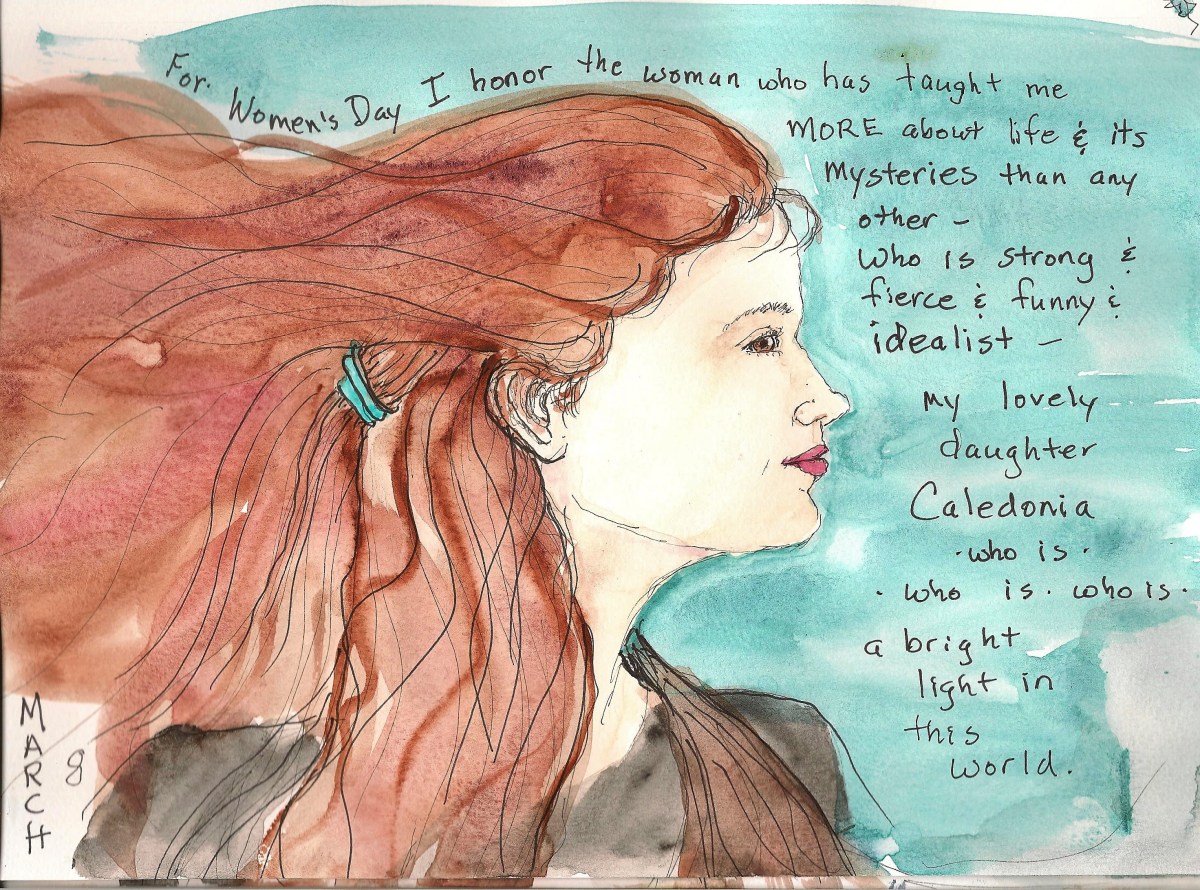 For. Women's Day I honor the woman who has taught me
MORE about life & its
Mysteries than any
other –
who is strong &
fierce & funny &
idealist –
my lovely
daughter
Caledonia
·who is·
· who is · who is ·
a bright
light in
this
world.
MARCH
8